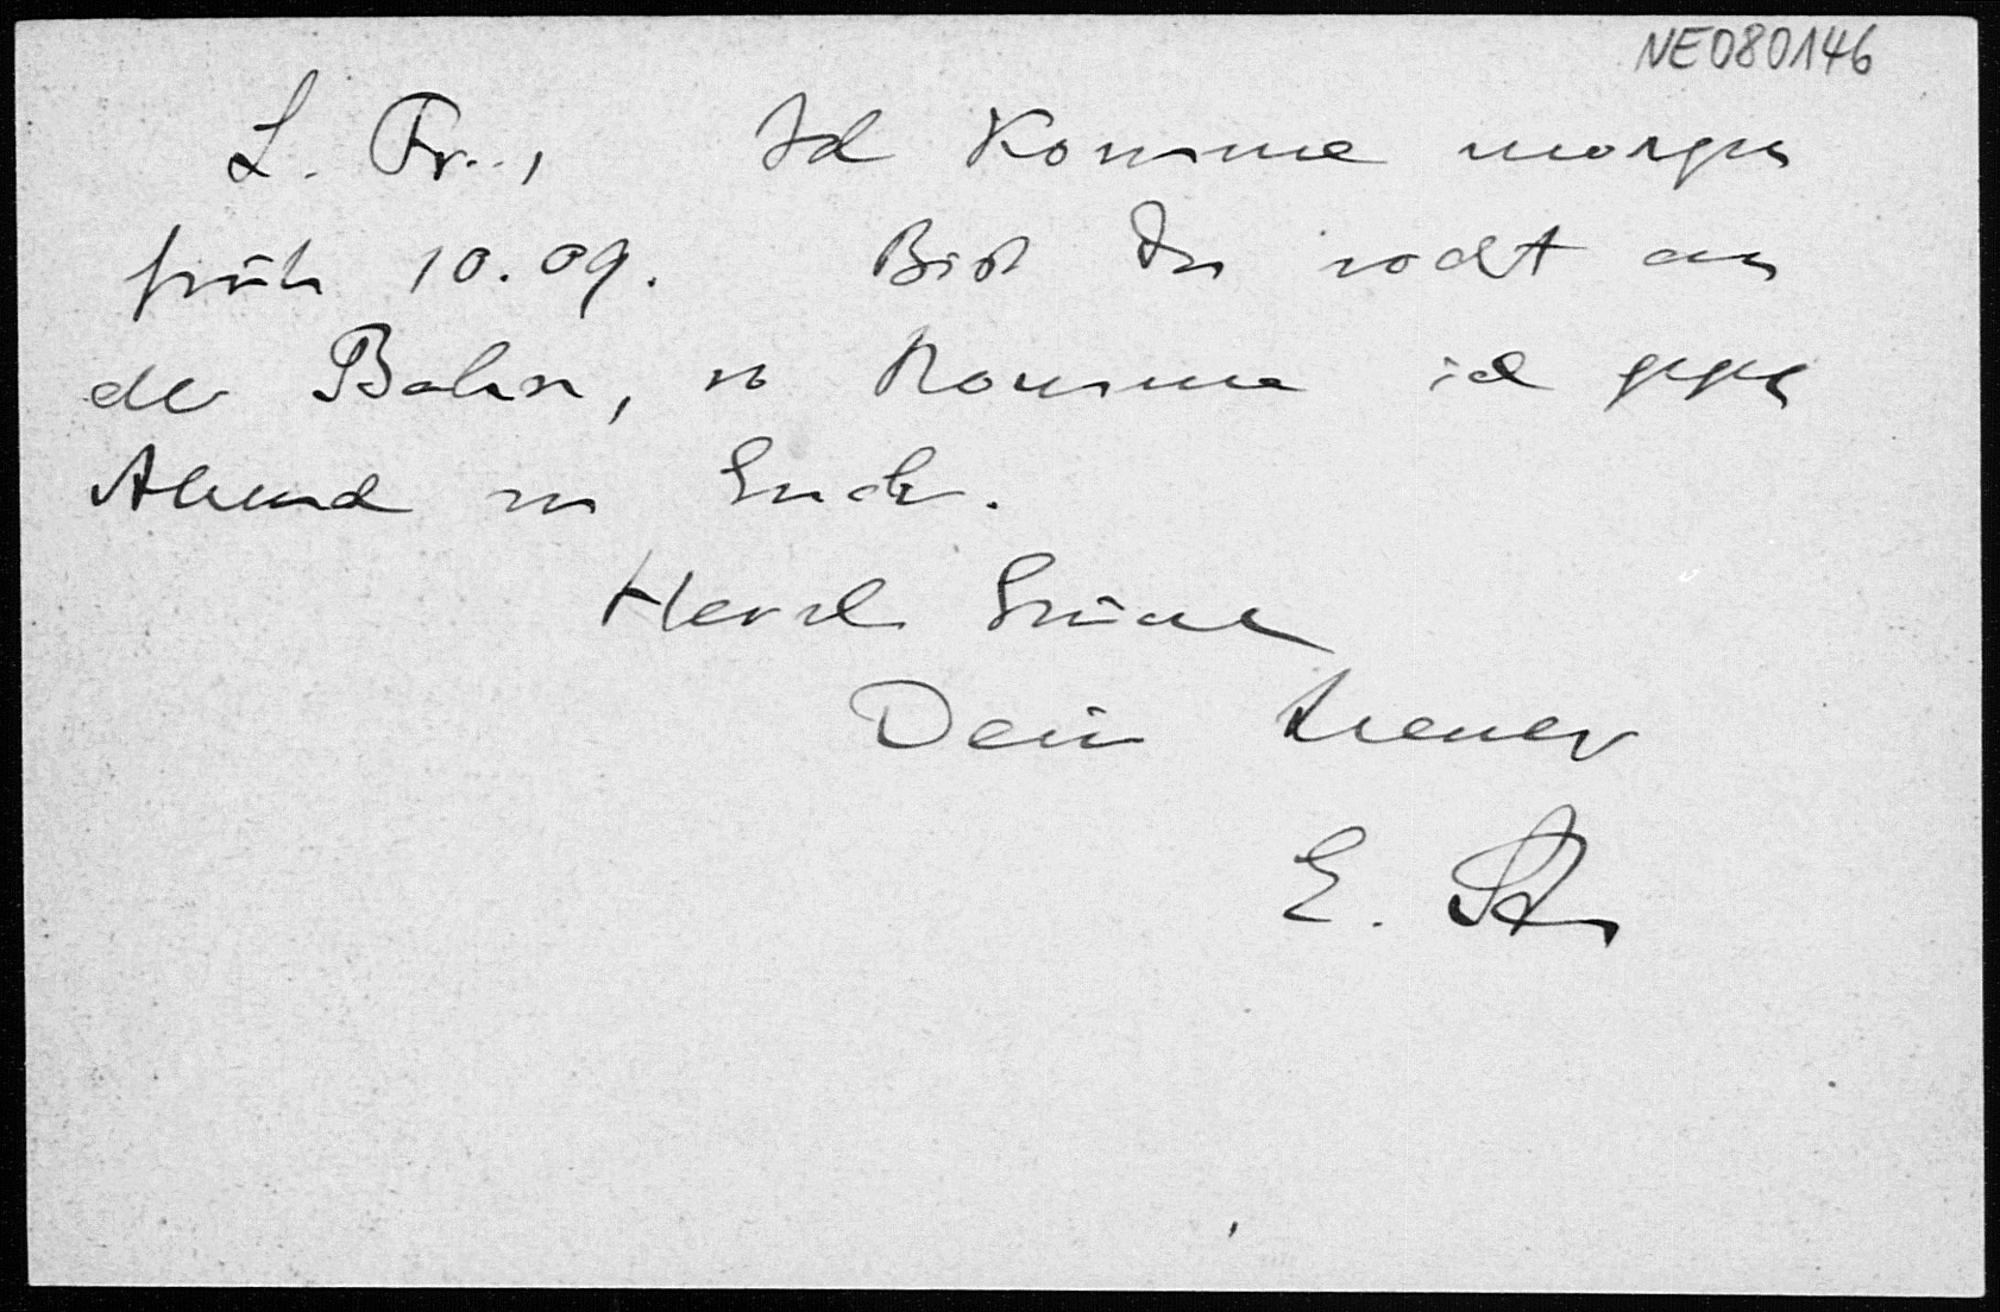 NE080146
L. Fr., Ich komme morgen
früh 10.09. Bist Du nicht an
der Bahn, so komme ich gegen
Abend zu Euch.
Herzl Grüsse
Dein treuer
E. St